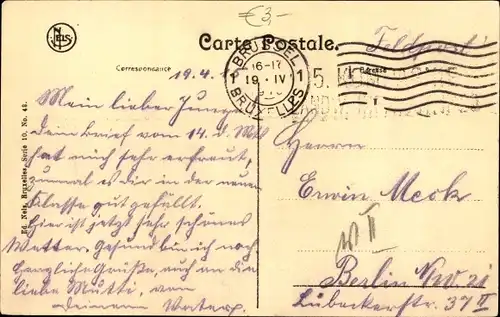 €3,-
NELS
Carte Postale.
Feldpost
Correspondance
Adresse
BRUSSEL
1 16-17 1
19 · IV
BRUXELLES
5.
19.4.
Mein lieber Junge,
Dein Brief vom 14. d. Mts
hat mich sehr erfreut,
zumal es dir in der neuen
Klasse gut gefällt.
Hier ist jetzt sehr schönes
Wetter. Gesund bin ich noch.
Herzliche Grüße, auch an die
liebe Mutti, von
deinem Vater.
Herrn
Erwin Meck
II
Berlin NW 21
Lübeckerstr. 37 II
Ed. Nels, Bruxelles, Serie 10. No. 42.